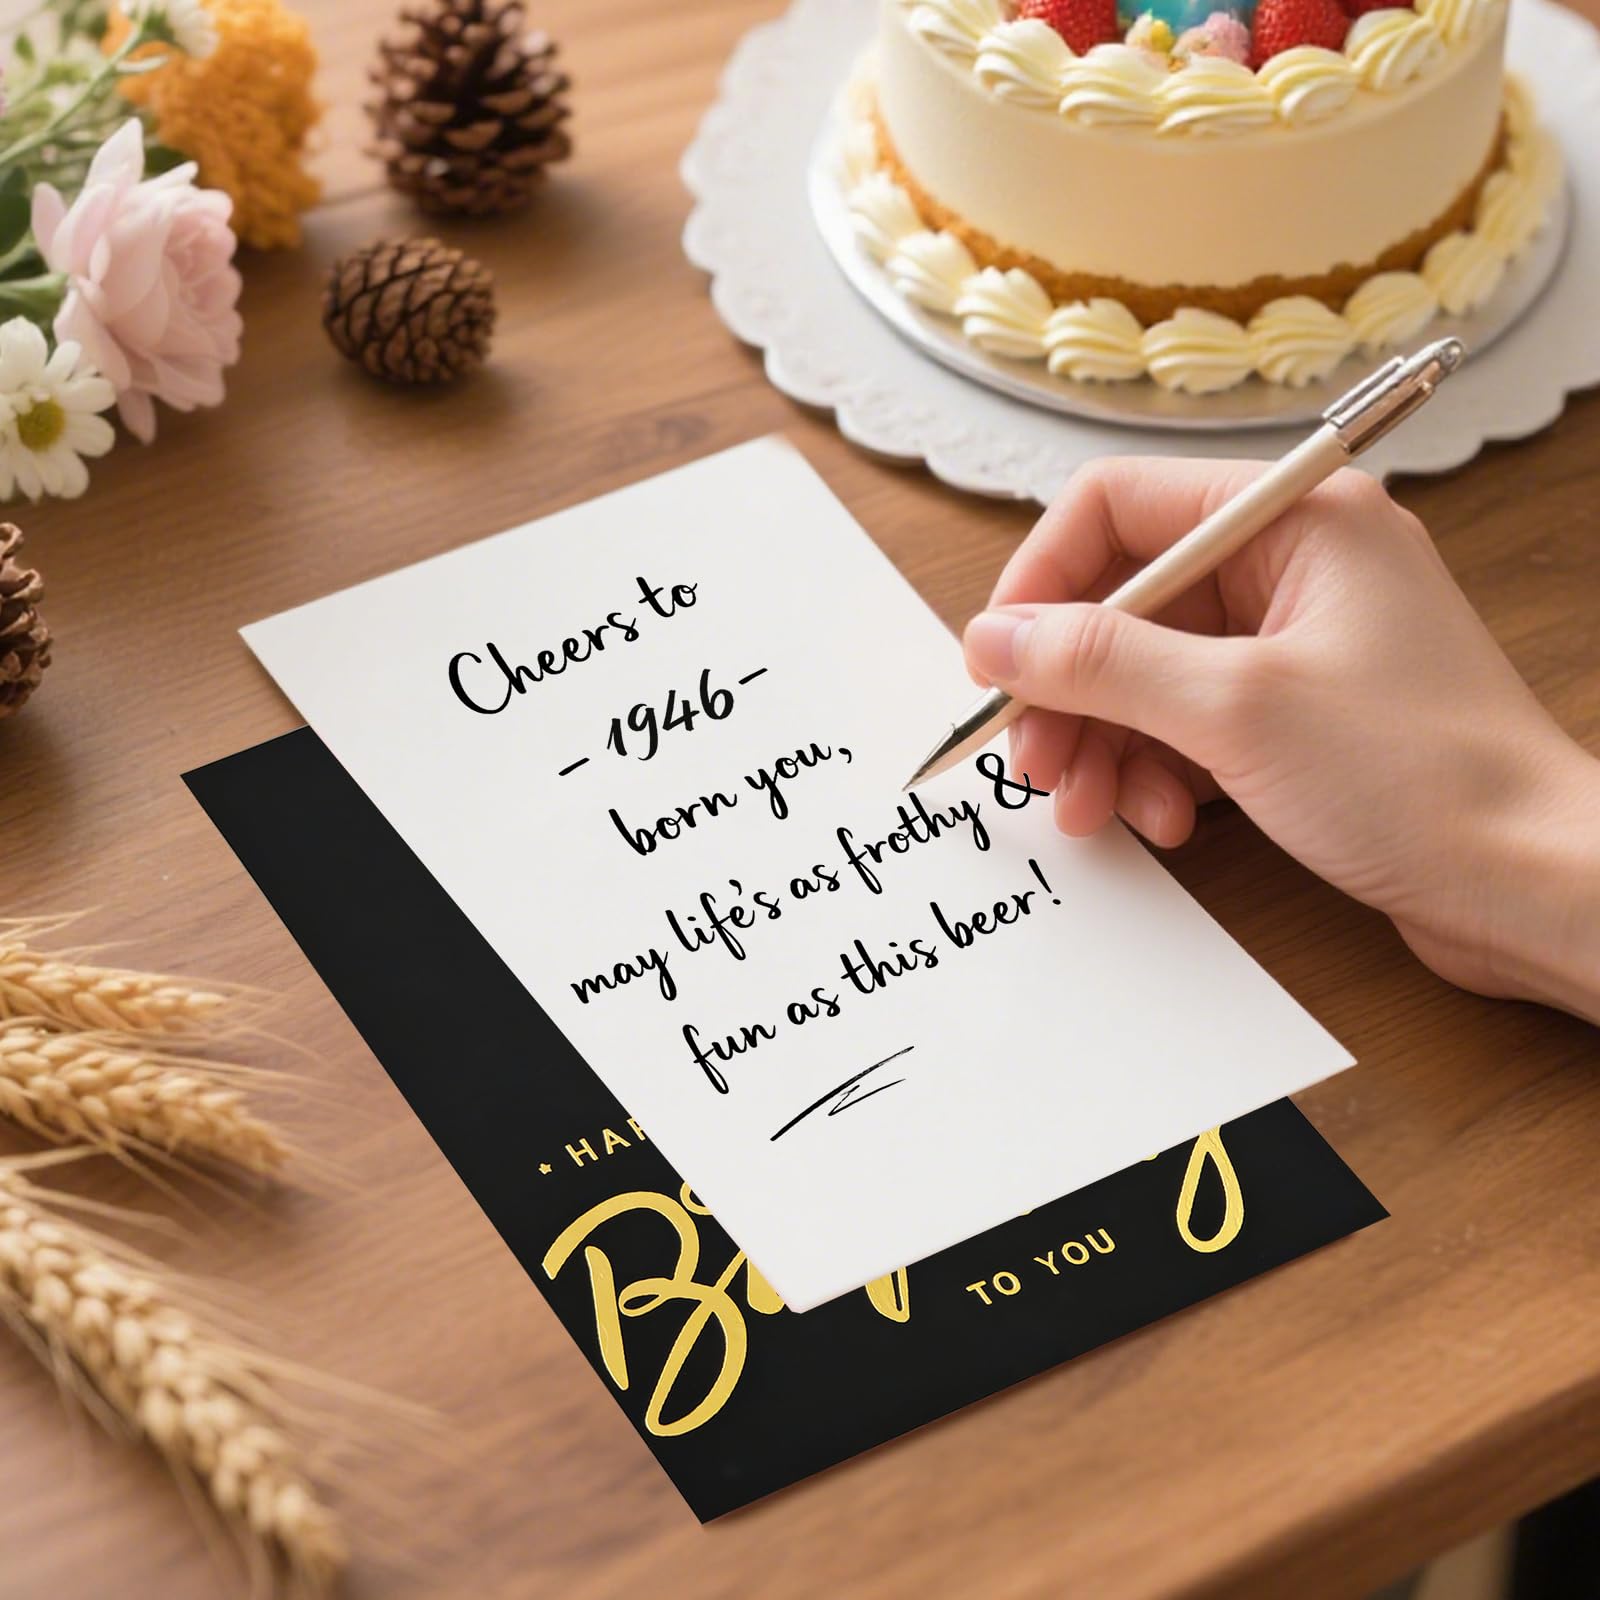 Cheers to
- 1946 -
born you,
may life's as frothy &
fun as this beer!
TO YOU